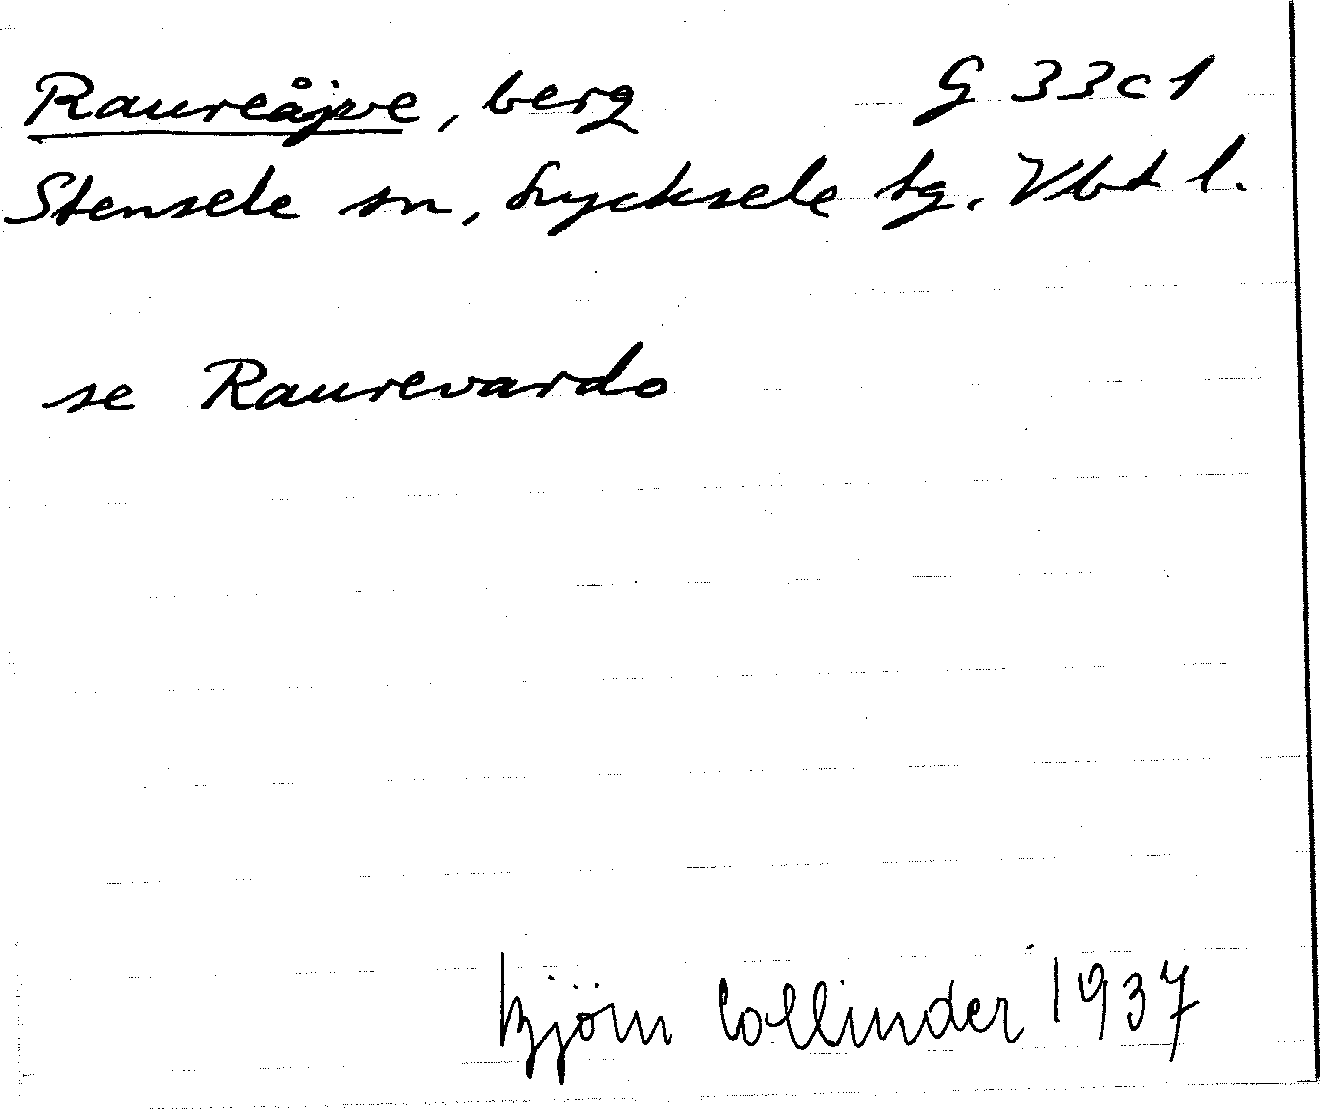 Raureåjve, berg G 33c1
Stensele sn, Lycksele tg. Vbt l.
se Raurevardo
Björn Collinder 1937